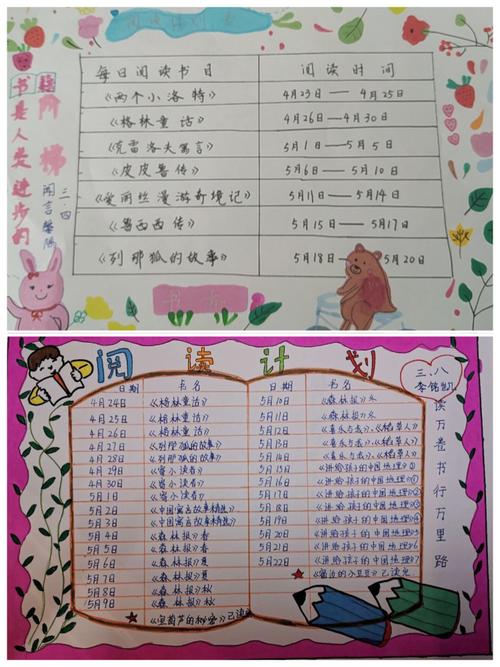 阅读计划书
每日阅读书目 阅读时间
《两个小洛特》 4月23日——4月25日
《格林童话》 4月26日——4月30日
《克雷洛夫寓言》 5月1日——5月5日
《皮皮鲁传》 5月6日——5月10日
《爱丽丝漫游奇境记》 5月11日——5月14日
《鲁西西传》 5月15日——5月17日
《列那狐的故事》 5月18日——5月20日
书是人类进步的
阶梯
三.四
书香
阅读计划
三.八
读万卷书行万里路
日期 书名 日期 书名
4月24日 《格林童话》 5月10日 《森林报》冬
4月25日 《格林童话》 5月11日 《森林报》冬
4月26日 《格林童话》 5月12日 《音乐与恋》、《稻草人》
4月27日 《列那狐的故事》
4月28日 《列那狐的故事》
4月29日 《寄小读者》 5月15日 《讲给孩子的中国地理》①
4月30日 《寄小读者》 5月16日
5月1日 《寄小读者》 5月17日
5月2日 《中国寓言故事精选》 5月18日
5月3日 《中国寓言故事精选》 5月19日
5月4日 《森林报》春 5月20日
5月5日 《森林报》春 5月21日
5月6日 《森林报》夏 5月22日
5月7日 《森林报》夏 《窗边的小豆豆》已读完
5月8日 《森林报》秋
5月9日 《森林报》秋
《宝葫芦的秘密》已读完